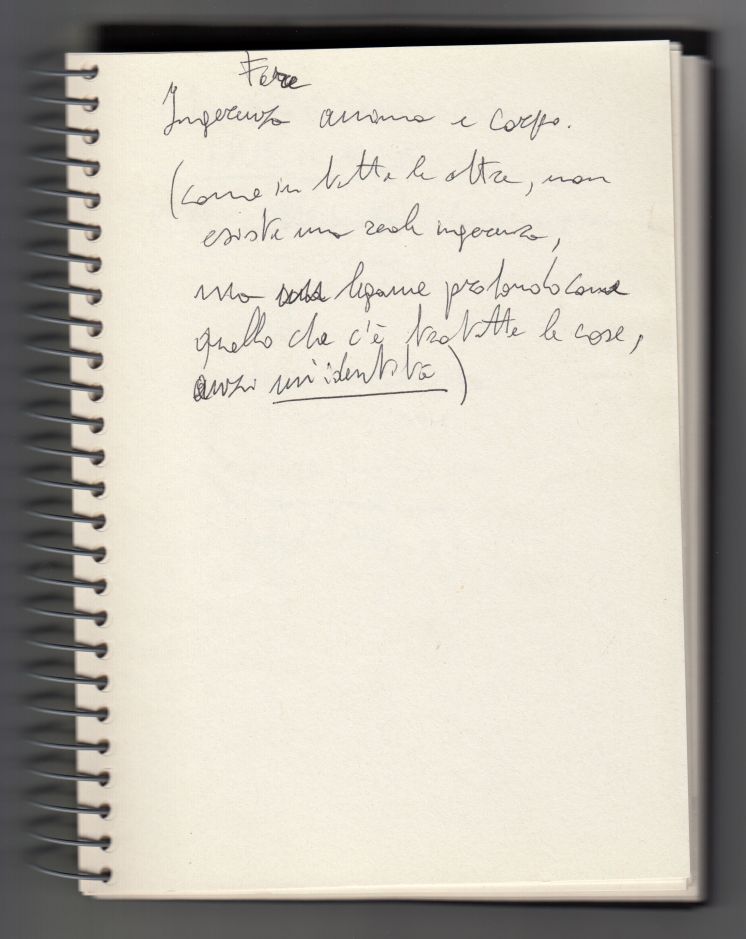 Fare
Ingerenza anima e corpo.
(come in tutte le altre, non
esiste una reale ingerenza,
ma legame profondo come
quello che c'è tra tutte le cose,
anzi un'identità)